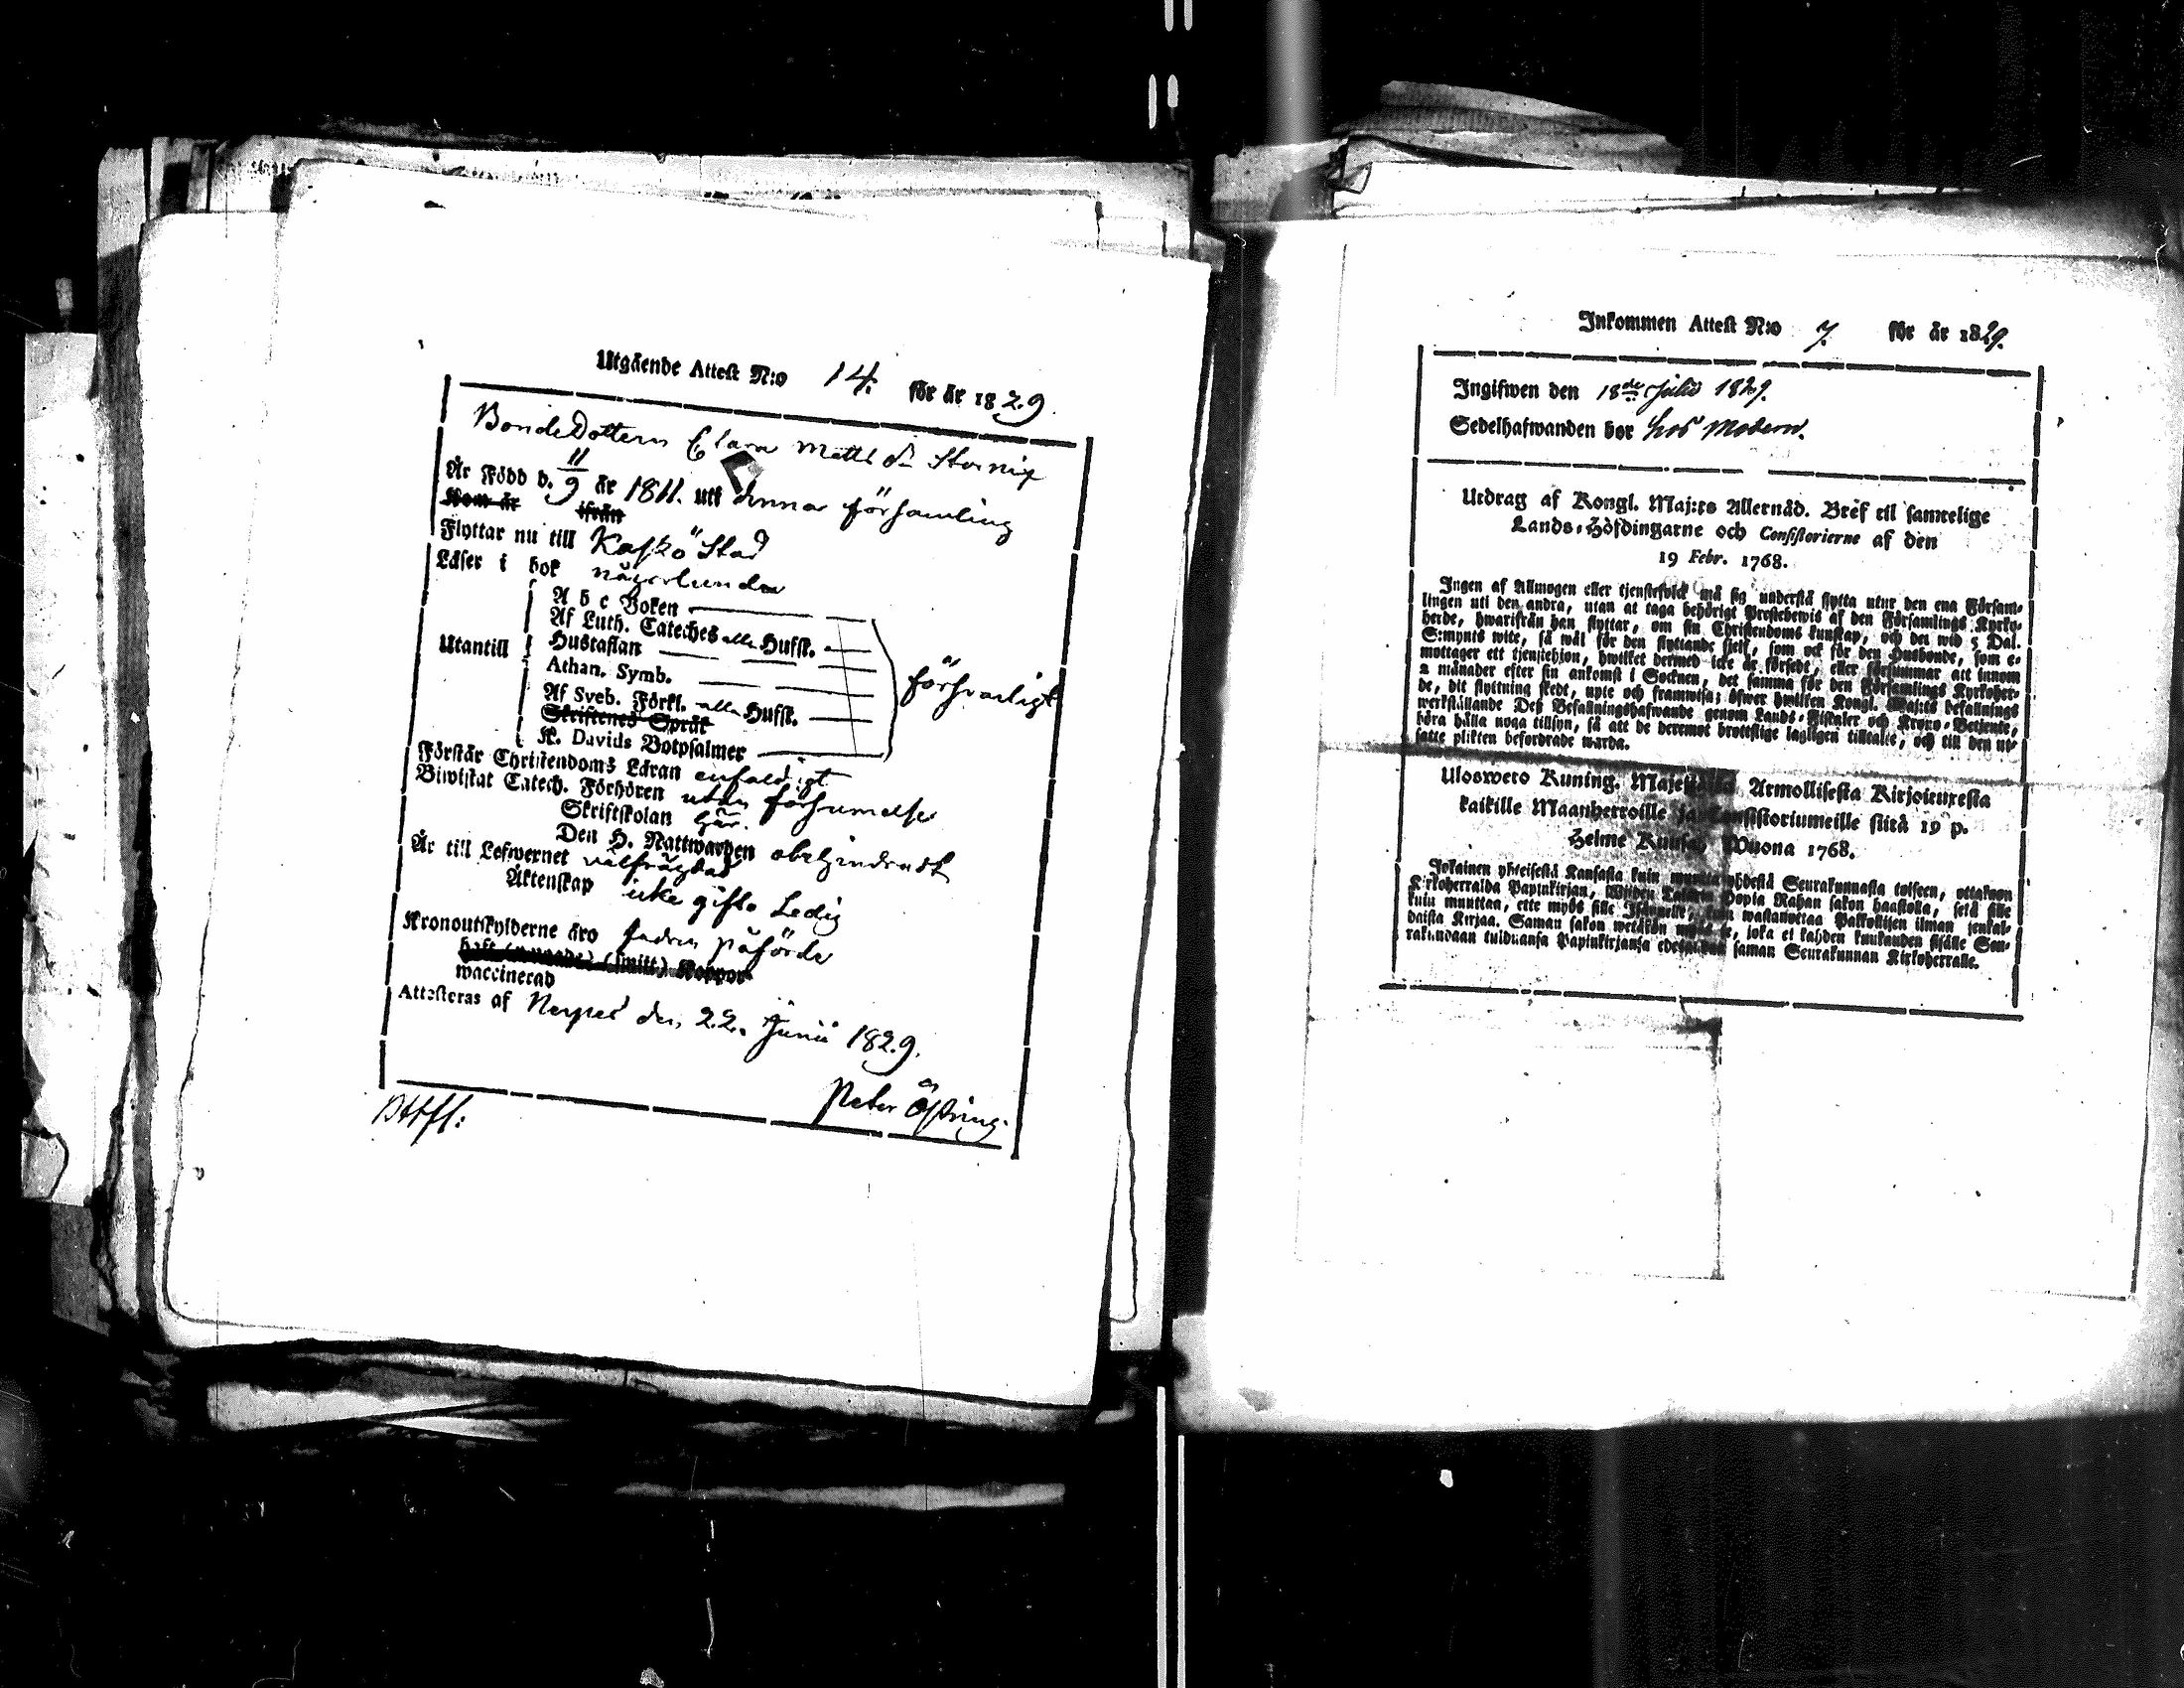 Utgående Attest N:o 14. för år 1829.
BondeDottern Clara Matts dr Stornix
Är Född d. 11/9 år 1811. uti denna församling
Kom år ifrån
Flyttar nu till Kaskö Stad
Läser i bok någorlunda
A b c Boken
Af Luth. Cateches alla Hufst.
Utantill Hustaflan försvarligt
Athan. Symb.
Af Sveb. Förkl. alla Hufst.
Skriftenes Språk
K. Davids Botpsalmer
Förstår Christendoms Läran enfaldigt
Biwistat Catech. Förhören utan försumelse
Skriftskolan här.
Den H. Nattwarden obehindradt
Är till Lefwernet välfrägdad
Äktenskap icke gift. Ledig
Kronoutskylderne äro fadren påförde
haft (smitt.) Koppor
waccinerad
Attesteras af Nerpes den 22. Junii 1829.
Peter Östring.
Inkommen Attest N:o 7. för år 1829.
Ingifwen den 18de Julii 1829.
Sedelhafwanden bor hos Modern.
Utdrag af Kongl. Maj:ts Allernåd. Bref til samtelige
Lands-Höfdingarne och Consistorierne af den
19 Febr. 1768.
Ingen af Allmogen eller tjenstefolck må sig understå flytta utur den ena Församlingen
uti den andra, utan at taga behörigt Prestebewis af den Församlings Kyrkoherde,
hwarifrån han flyttar, om sin Christendoms kunskap, och det wid 5 Dal.
S:mynts wite, så wäl för den flyttande sjelf, som ock för den Husbonde, som emottager
ett tjenstehjon, hwilket dermed icke är försedt, eller försummar att innom
2 månader efter sin ankomst i Socknen, det samma för den Församlings Kyrkoherde,
dit flyttning skedt, upte och framwisa; öfwer hwilken Kongl. Maj:ts befallnings
werkställande Dess Befallningshafwande genom Lands-Fiskaler och Krono-Betjente,
böra hålla noga tillsyn, så att de deremot brottslige lagligen tilltalte, och till den utsatte
plikten befordrade warda.
Uloswero Kuning. Majestetin Armollisesta Kirjoituxesta
kaikille Maanherroille ja Consistoriumeille siitä 19 p.
Helme Kuusa Wuona 1768.
Jokainen yhteisestä Kansasta kuin muuttaa yhdestä Seurakunnasta toiseen, ottakoon
Kirkoherralda Papinkirjan, Wiiden Talarin Hopia Rahan sakon haastolla, sekä sille
kuin muuttaa, ette myös sille Isännelle, kuin wastanottaa Palkollisen ilman senkaldaista
Kirjaa. Saman sakon wetäkön myös se, joka ei kahden kuukauden sisälle Seurakundaan
tulduansa Papinkirjansa edesanna saman Seurakunnan Kirkoherralle.